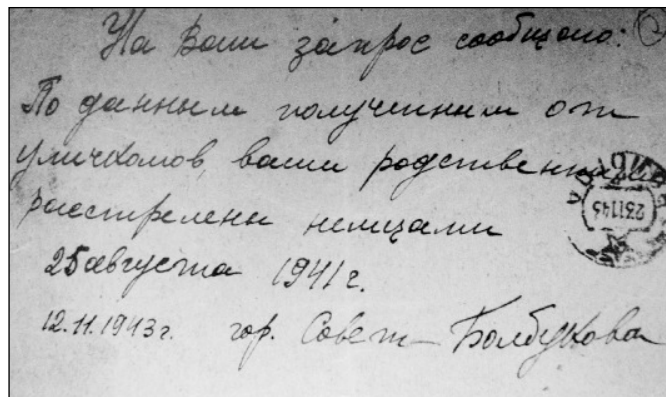 На Ваш запрос сообщаю:
По данным полученным от
уличкомов, ваши родственники
расстреляны немцами
25 августа 1941 г.
12.11.1943 г. гор. Совет Болбукова
231143